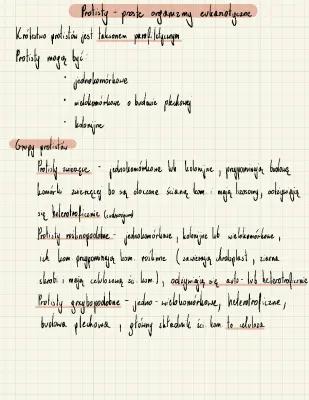 Protisty - proste organizmy eukariotyczne
Królestwo protistów jest taksonem parafiletycznym
Protisty mogą być:
· jednokomórkowe
· wielokomórkowe o budowie plechowej
· kolonijne
Grupy protistów
Protisty zwierzęce - jednokomórkowe lub kolonijne, przypominają budową
komórki zwierzęcej bo są otoczone ścianą kom. i mają lizosomy, odżywiają
się heterotroficznie (cudzożywne)
Protisty roślinopodobne - jednokomórkowe, kolonijne lub wielokomórkowe,
ich kom przypominają kom. roślinne ( zawierają chloroplast, ziarna
skrobi i mają celulozową śc. kom.), odżywiają się auto- lub heterotroficznie
Protisty grzybopodobne - jedno-wielokomórkowe, heterotroficzne,
budowa plechowa, główny składnik śc. kom. to celuloza